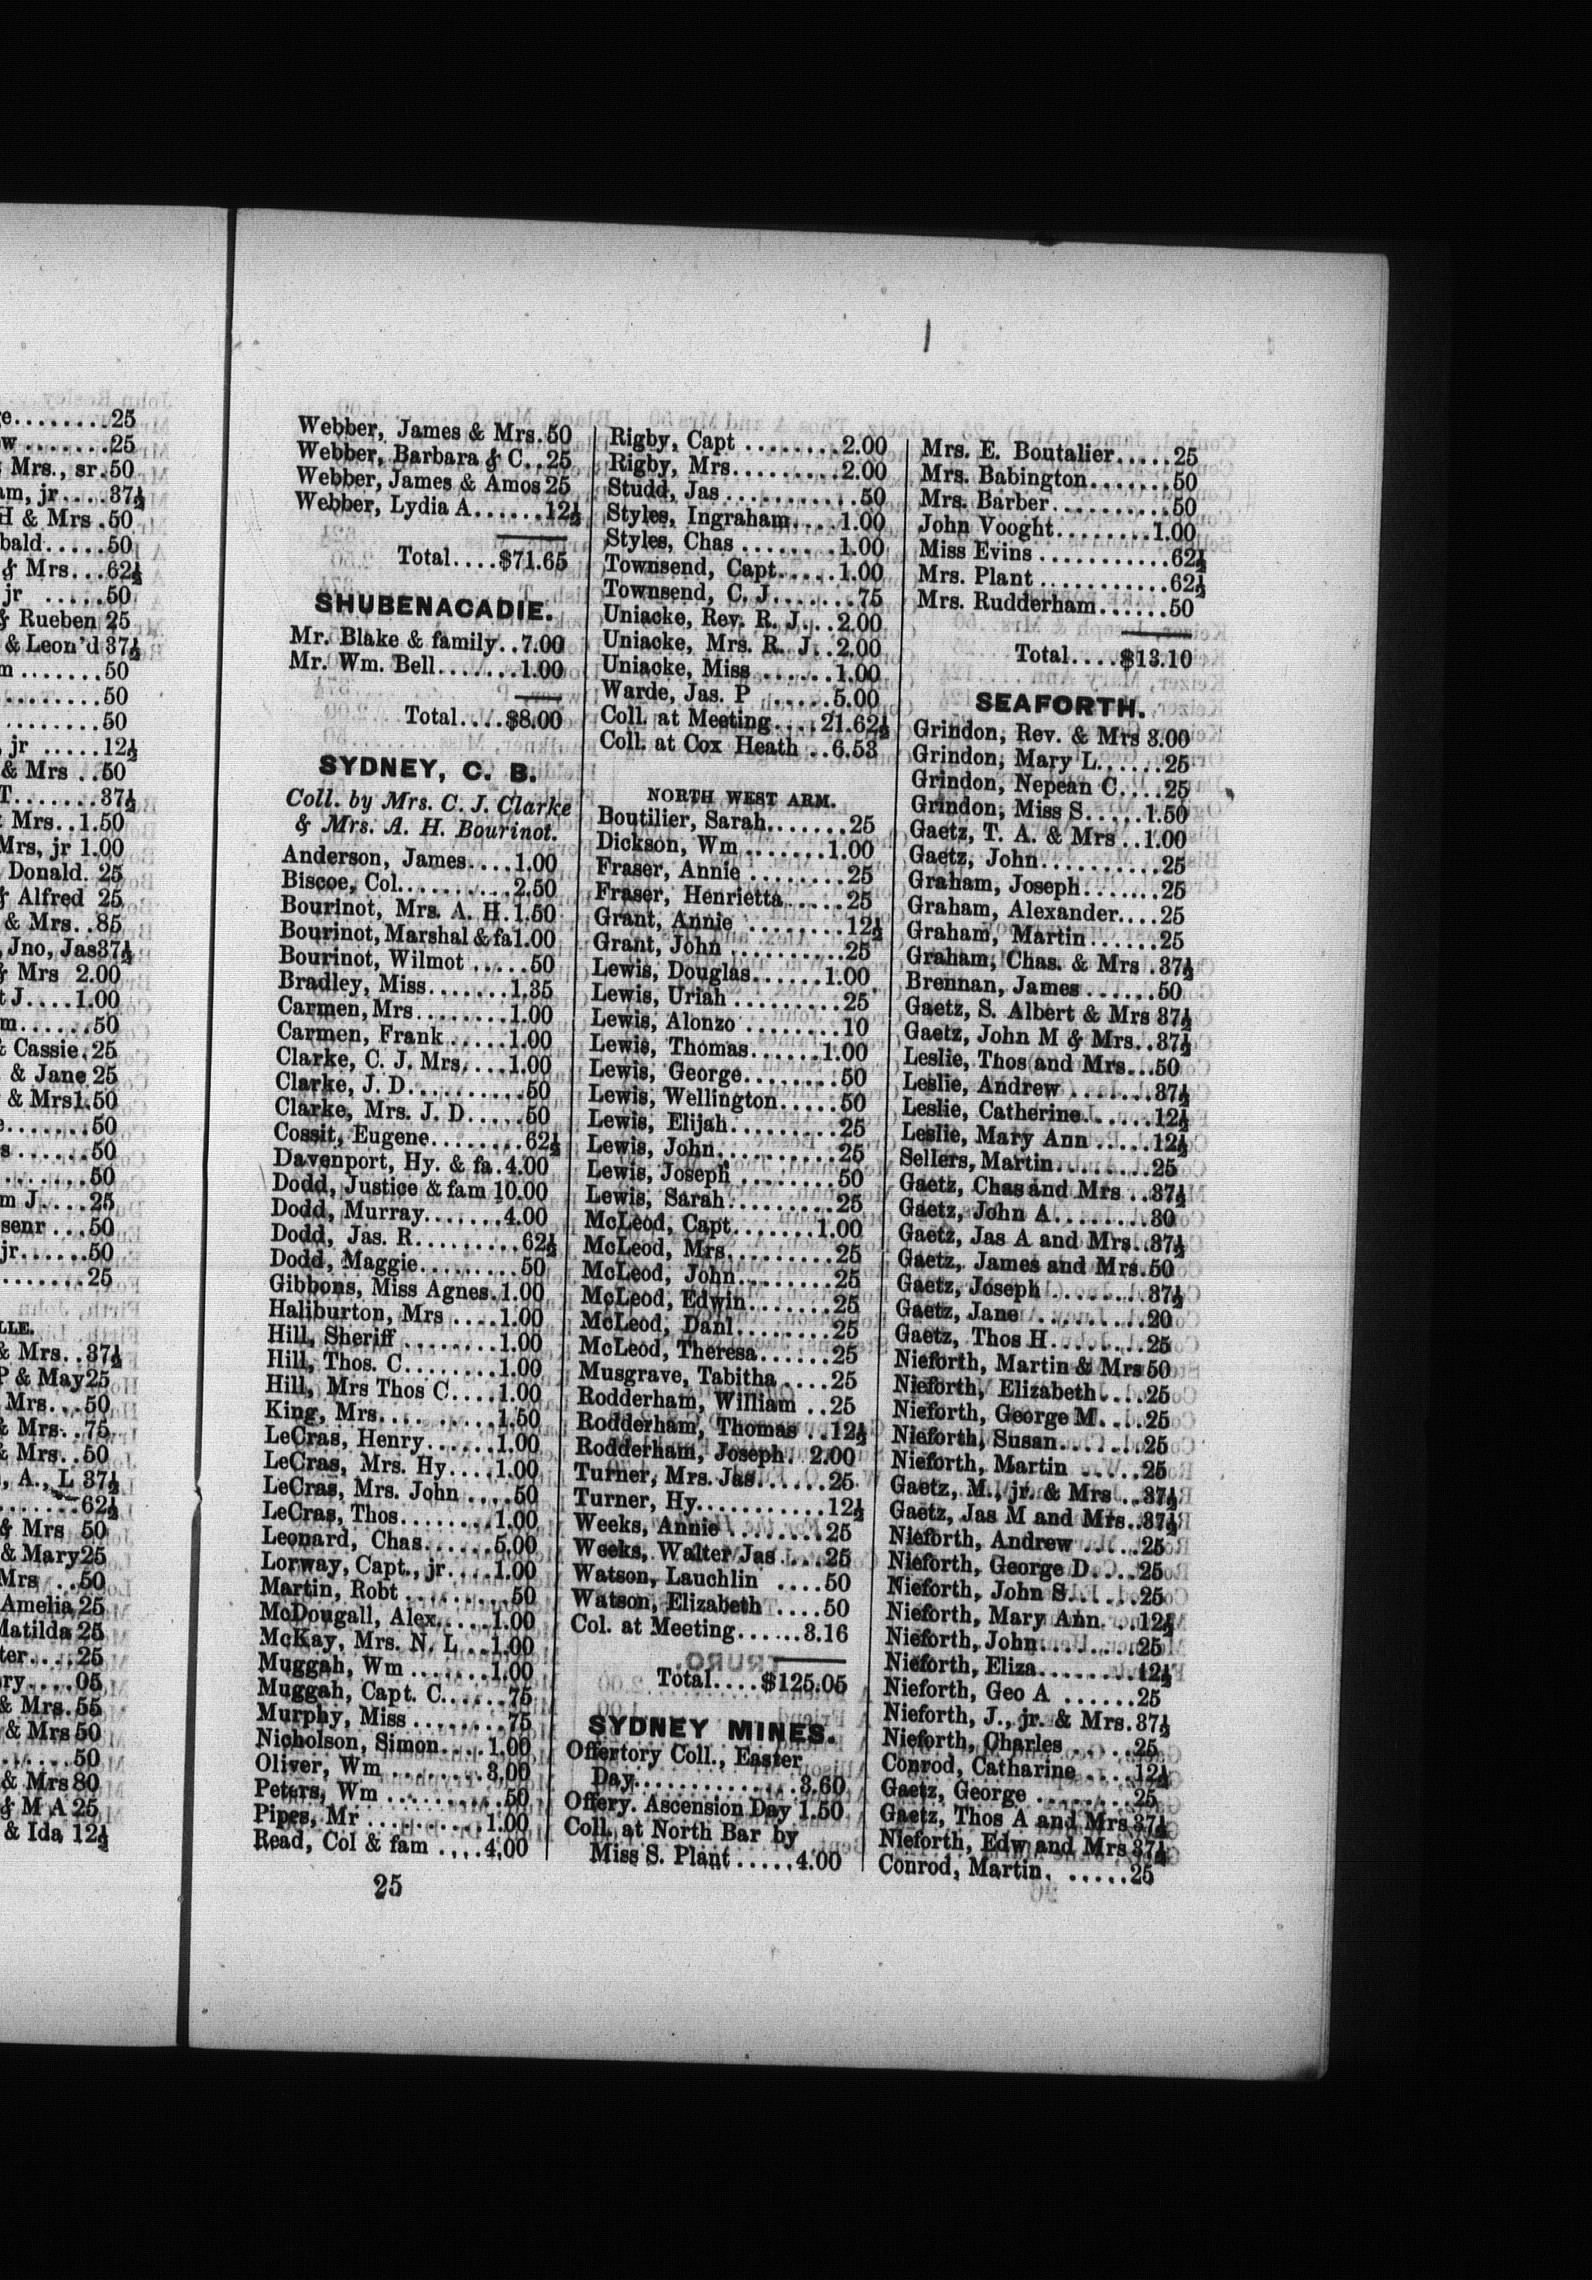 e........25
w........25
Mrs., sr. 50
am, jr....37½
H & Mrs .50
bald.....50
& Mrs...62½
jr ......50
& Rueben 25
& Leon'd 37½
m .......50
.........50
.........50
, jr .....12½
& Mrs ..50
T.......37½
Mrs..1.50
Mrs, jr 1.00
Donald. 25
& Alfred 25
& Mrs..85
, Jno, Jas37½
& Mrs 2.00
t J....1.00
m......50
& Cassie.25
& Jane 25
& Mrs1.50
e.......50
s .......50
........50
m J....25
senr ...50
jr......50
........25
LLE.
& Mrs..37½
P & May25
Mrs...50
& Mrs..75
& Mrs..50
, A., L 37½
.......62½
& Mrs 50
& Mary25
Mrs ...50
Amelia 25
Matilda 25
ter.....25
ry....05
& Mrs.55
& Mrs 50
.......50
& Mrs 80
& M A 25
& Ida 12½
Webber, James & Mrs.50
Webber, Barbara & C..25
Webber, James & Amos 25
Webber, Lydia A......12½
Total....$71.65
SHUBENACADIE.
Mr. Blake & family..7.00
Mr. Wm. Bell.......1.00
Total....$8.00
SYDNEY, C. B.
Coll. by Mrs. C. J. Clarke
& Mrs. A. H. Bourinot.
Anderson, James....1.00
Biscoe, Col..........2.50
Bourinot, Mrs. A. H.1.50
Bourinot, Marshal & fa1.00
Bourinot, Wilmot .....50
Bradley, Miss.......1.35
Carmen, Mrs........1.00
Carmen, Frank.....1.00
Clarke, C. J. Mrs....1.00
Clarke, J. D..........50
Clarke, Mrs. J. D.....50
Cossit, Eugene........62½
Davenport, Hy. & fa.4.00
Dodd, Justice & fam 10.00
Dodd, Murray.......4.00
Dodd, Jas. R.........62½
Dodd, Maggie.........50
Gibbons, Miss Agnes.1.00
Haliburton, Mrs ....1.00
Hill, Sheriff ........1.00
Hill, Thos. C........1.00
Hill, Mrs Thos C....1.00
King, Mrs..........1.50
LeCras, Henry......1.00
LeCras, Mrs. Hy....1.00
LeCras, Mrs. John ....50
LeCras, Thos........1.00
Leonard, Chas......5.00
Lorway, Capt., jr....1.00
Martin, Robt .........50
McDougall, Alex....1.00
McKay, Mrs. N. L ..1.00
Muggah, Wm .......1.00
Muggah, Capt. C......75
Murphy, Miss ........75
Nicholson, Simon....1.00
Oliver, Wm ........3.00
Peters, Wm ..........50
Pipes, Mr ..........1.00
Read, Col & fam ....4.00
25
Rigby, Capt .........2.00
Rigby, Mrs.........2.00
Studd, Jas............50
Styles, Ingraham....1.00
Styles, Chas ........1.00
Townsend, Capt.....1.00
Townsend, C. J.......75
Uniacke, Rev. R. J...2.00
Uniacke, Mrs. R. J..2.00
Uniacke, Miss ......1.00
Warde, Jas. P .....5.00
Coll. at Meeting....21.62½
Coll. at Cox Heath ..6.53
NORTH WEST ARM.
Boutilier, Sarah.......25
Dickson, Wm .......1.00
Fraser, Annie ........25
Fraser, Henrietta......25
Grant, Annie ........12½
Grant, John ..........25
Lewis, Douglas......1.00
Lewis, Uriah .........25
Lewis, Alonzo ........10
Lewis, Thomas......1.00
Lewis, George........50
Lewis, Wellington.....50
Lewis, Elijah.........25
Lewis, John..........25
Lewis, Joseph ........50
Lewis, Sarah.........25
McLeod, Capt.......1.00
McLeod, Mrs.........25
McLeod, John........25
McLeod, Edwin.......25
McLeod, Danl........25
McLeod, Theresa......25
Musgrave, Tabitha ....25
Rodderham, William ..25
Rodderham, Thomas ..12½
Rodderham, Joseph. 2.00
Turner, Mrs. Jas......25
Turner, Hy...........12½
Weeks, Annie ........25
Weeks, Walter Jas ....25
Watson, Lauchlin ....50
Watson, Elizabeth ....50
Col. at Meeting......3.16
Total....$125.05
SYDNEY MINES.
Offertory Coll., Easter
Day..............3.60
Offery. Ascension Day 1.50
Coll. at North Bar by
Miss S. Plant .....4.00
Mrs. E. Boutalier.....25
Mrs. Babington.......50
Mrs. Barber..........50
John Vooght........1.00
Miss Evins ...........62½
Mrs. Plant ...........62½
Mrs. Rudderham......50
Total....$13.10
SEAFORTH.
Grindon, Rev. & Mrs 3.00
Grindon, Mary L......25
Grindon, Nepean C....25
Grindon, Miss S.....1.50
Gaetz, T. A. & Mrs ..1.00
Gaetz, John..........25
Graham, Joseph......25
Graham, Alexander....25
Graham, Martin......25
Graham, Chas. & Mrs .37½
Brennan, James ......50
Gaetz, S. Albert & Mrs 37½
Gaetz, John M & Mrs..37½
Leslie, Thos and Mrs...50
Leslie, Andrew .......37½
Leslie, Catherine......12½
Leslie, Mary Ann .....12½
Sellers, Martin........25
Gaetz, Chas and Mrs ..37½
Gaetz, John A........30
Gaetz, Jas A and Mrs..37½
Gaetz, James and Mrs.50
Gaetz, Joseph ........37½
Gaetz, Jane .........20
Gaetz, Thos H........25
Nieforth, Martin & Mrs 50
Nieforth, Elizabeth....25
Nieforth, George M....25
Nieforth, Susan.......25
Nieforth, Martin .....25
Gaetz, M., jr. & Mrs ..37½
Gaetz, Jas M and Mrs..37½
Nieforth, Andrew .....25
Nieforth, George D....25
Nieforth, John S......25
Nieforth, Mary Ann. ..12½
Nieforth, John........25
Nieforth, Eliza........12½
Nieforth, Geo A ......25
Nieforth, J., jr. & Mrs.37½
Nieforth, Charles .....25
Conrod, Catharine ....12½
Gaetz, George ........25
Gaetz, Thos A and Mrs 37½
Nieforth, Edw and Mrs 37½
Conrod, Martin. .....25